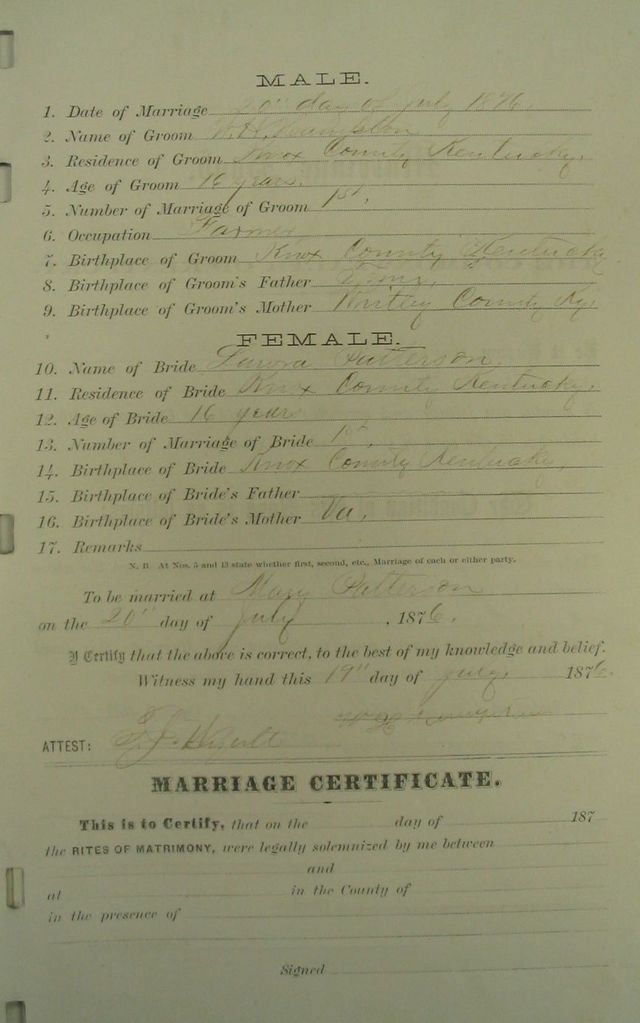 MALE.
1. Date of Marriage 20" day of July 1876.
2. Name of Groom W.H.
3. Residence of Groom Knox County Kentucky.
4. Age of Groom 16 years.
5. Number of Marriage of Groom 1st.
6. Occupation Farmer
7. Birthplace of Groom Knox County Kentucky
8. Birthplace of Groom's Father
9. Birthplace of Groom's Mother Whitley County Ky.
FEMALE.
10. Name of Bride Laura Patterson.
11. Residence of Bride Knox County Kentucky.
12. Age of Bride 16 years
13. Number of Marriage of Bride 1st.
14. Birthplace of Bride Knox County Kentucky.
15. Birthplace of Bride's Father
16. Birthplace of Bride's Mother Va.
17. Remarks
N. B. At Nos. 5 and 13 state whether first, second, etc., Marriage of each or either party.
To be married at Mary Patterson
on the 20" day of July, 1876.
I Certify that the above is correct, to the best of my knowledge and belief.
Witness my hand this 19" day of July. 1876.
ATTEST:
MARRIAGE CERTIFICATE.
This is to Certify, that on the day of 187
the RITES OF MATRIMONY, were legally solemnized by me between
and
at in the County of
in the presence of
Signed